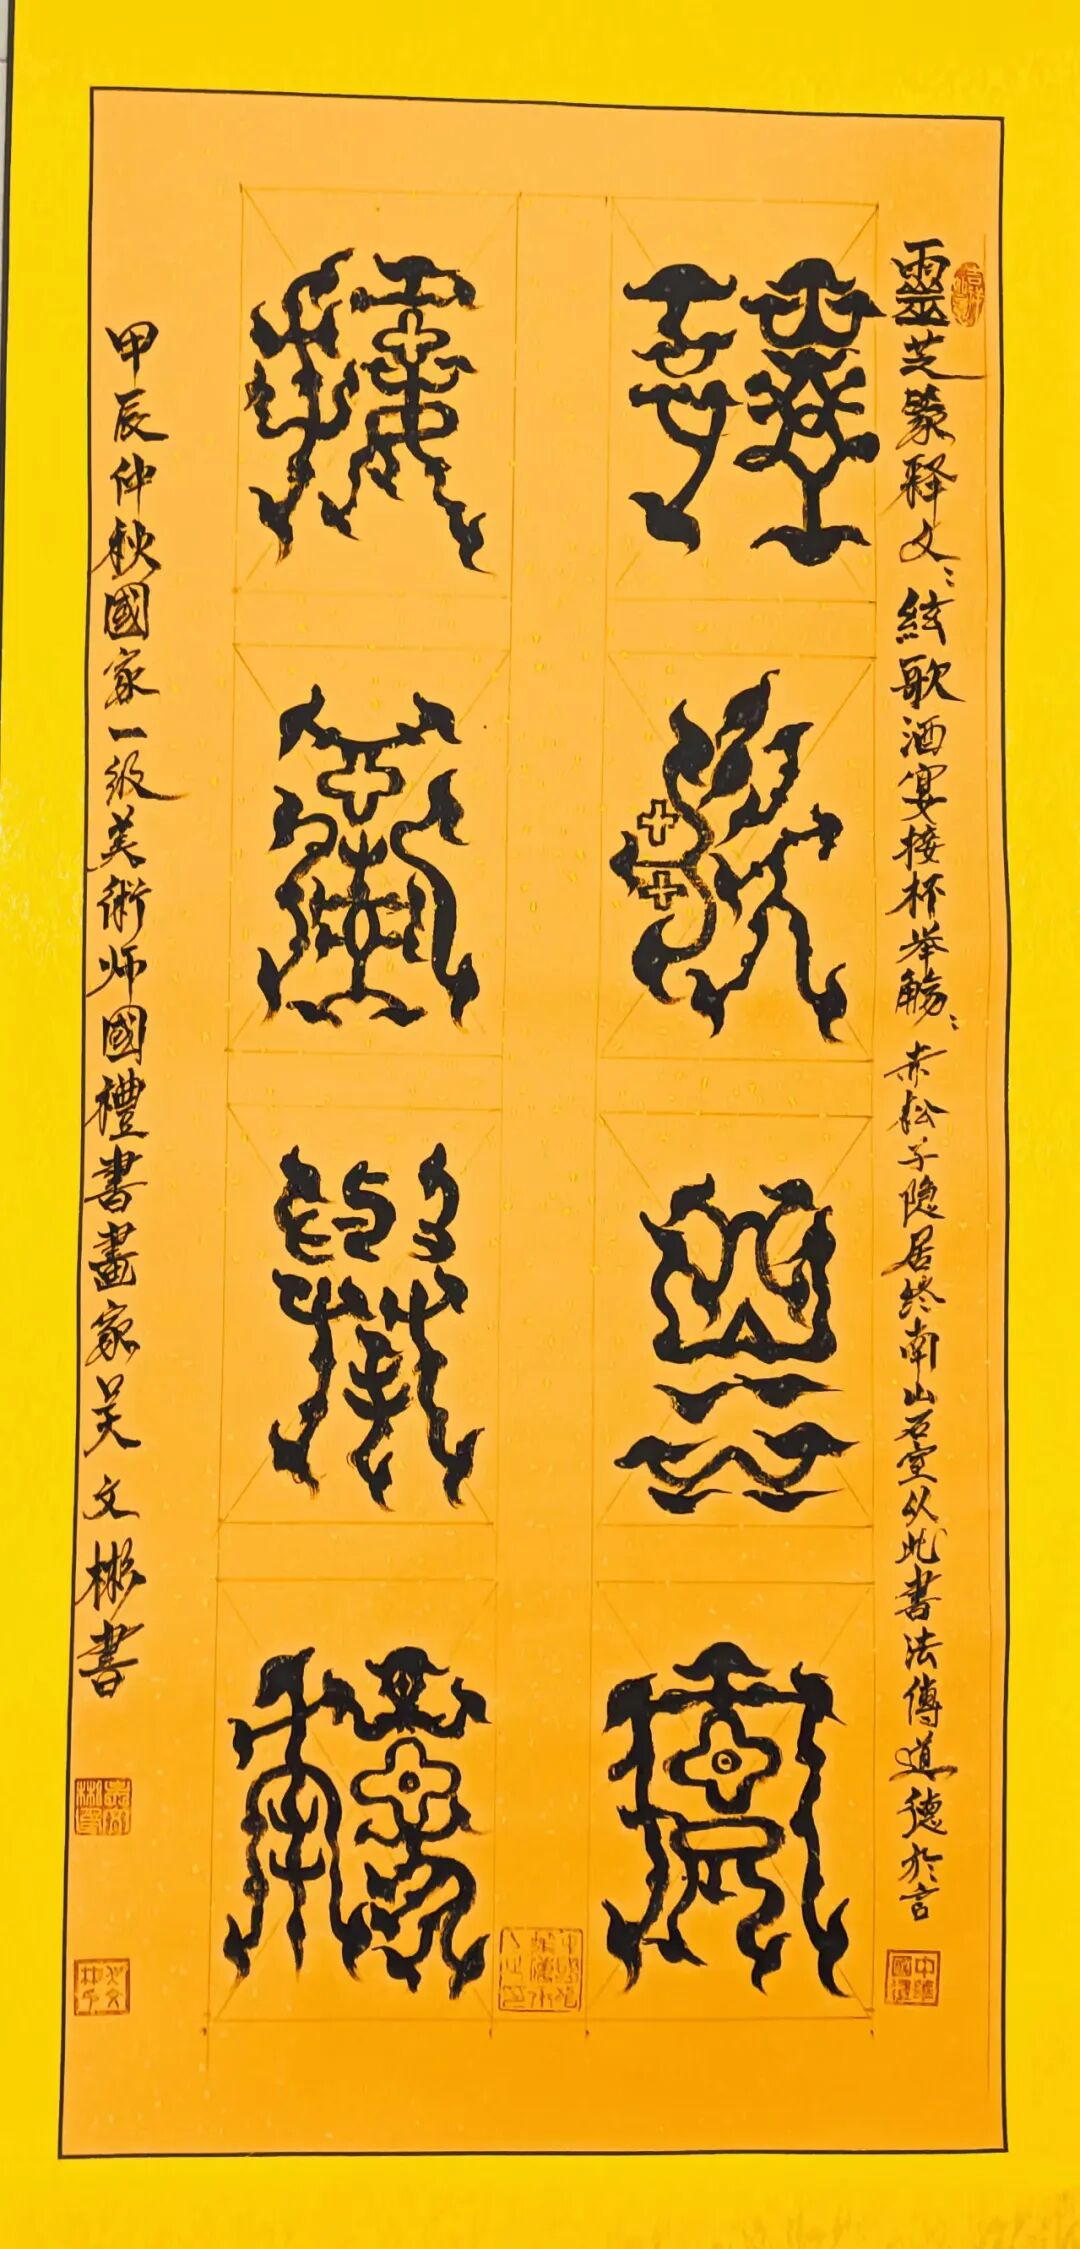 靈芝篆释文：絃歌酒宴接杯举觞：赤松子隐居终南山石室从此書法傳道德於言
絃歌酒宴
接杯举觞
甲辰仲秋國家一级美術师國禮書畫家吴文彬書